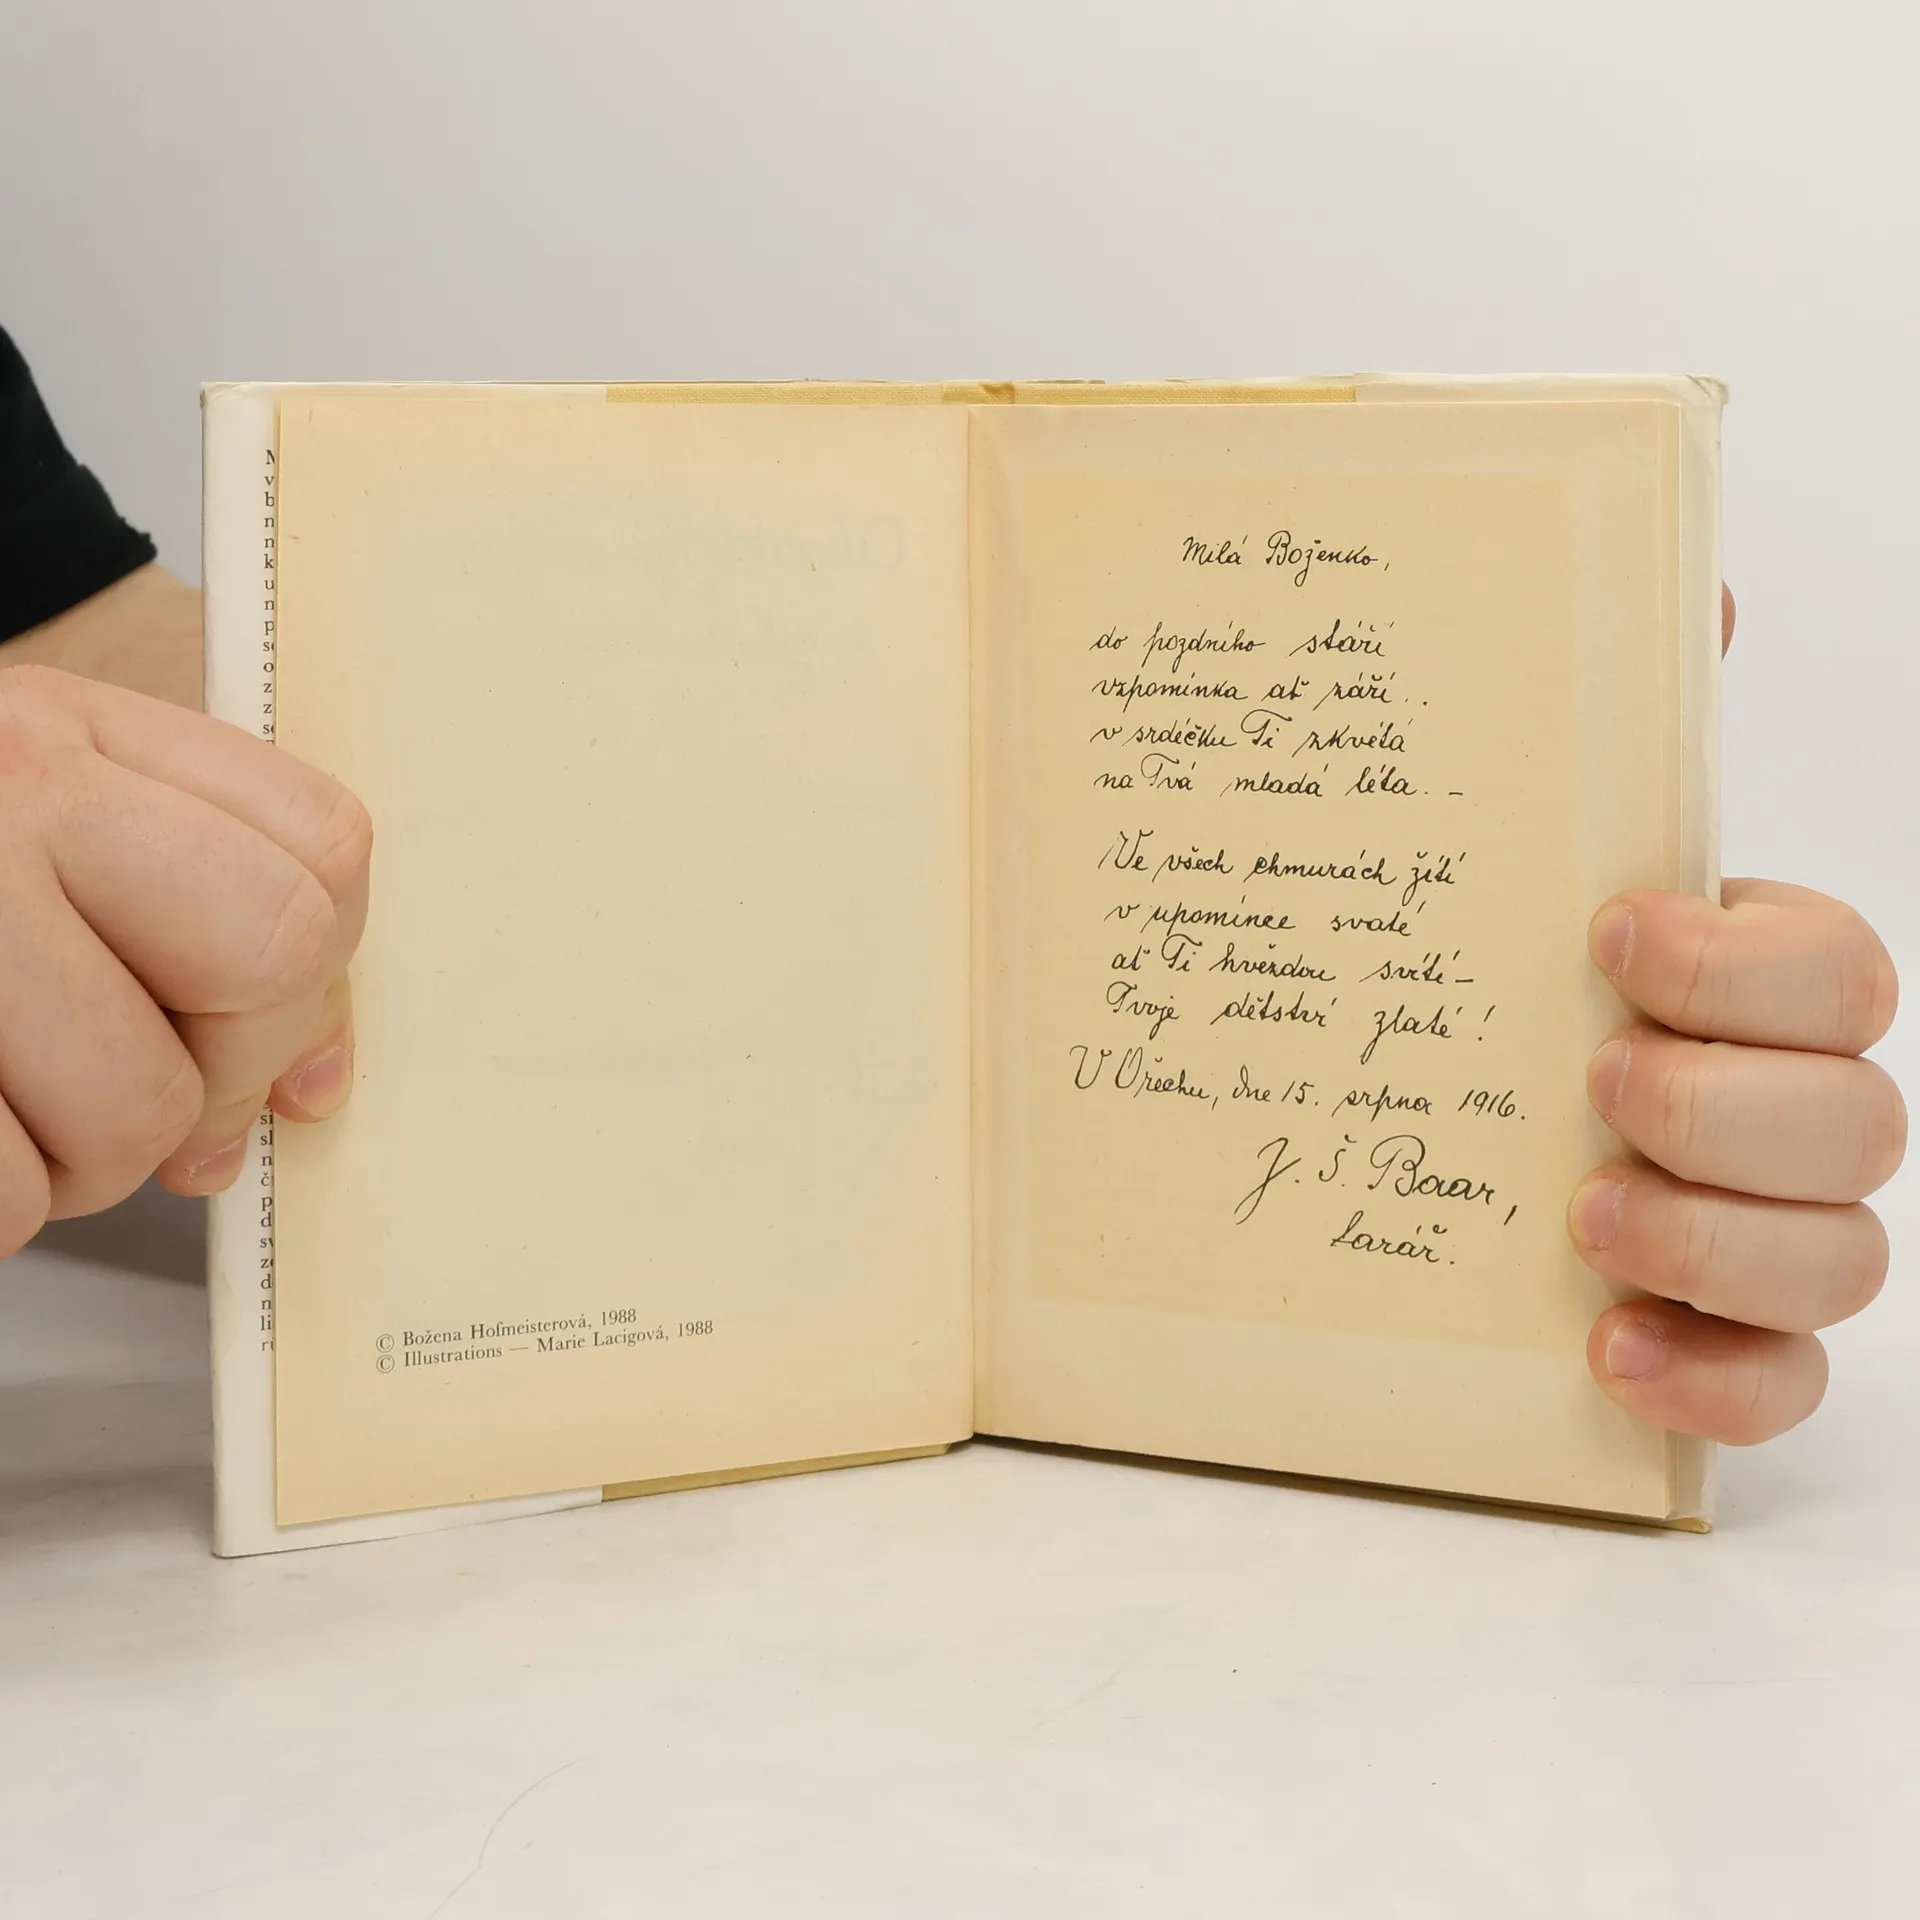 © Božena Hofmeisterová, 1988
© Illustrations — Marie Lacigová, 1988
Milá Boženko,
do pozdního stáří
vzpomínka ať září..
v srdéčku Ti zkvétá
na Tvá mladá léta. –
Ve všech chmurách žití
v upomínce svaté
ať Ti hvězdou svítí –
Tvoje dětství zlaté!
V Ořechu, dne 15. srpna 1916.
J. Š. Baar,
farář.